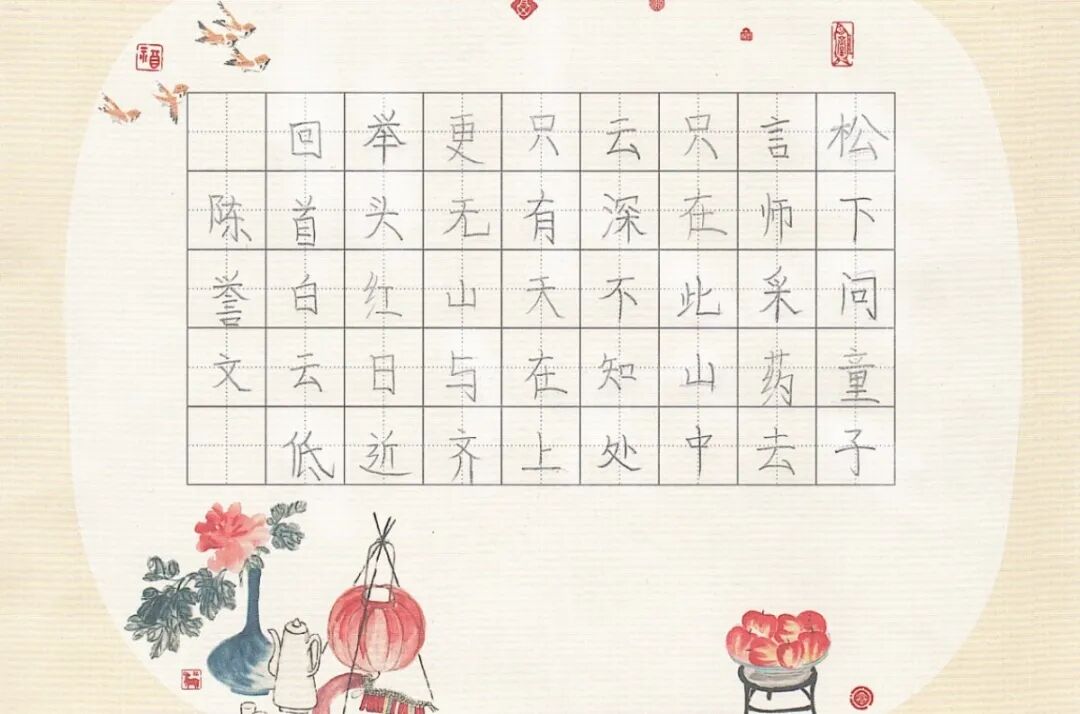 松下问童子
言师采药去
只在此山中
云深不知处
只有天在上
更无山与齐
举头红日近
回首白云低
陈誉文